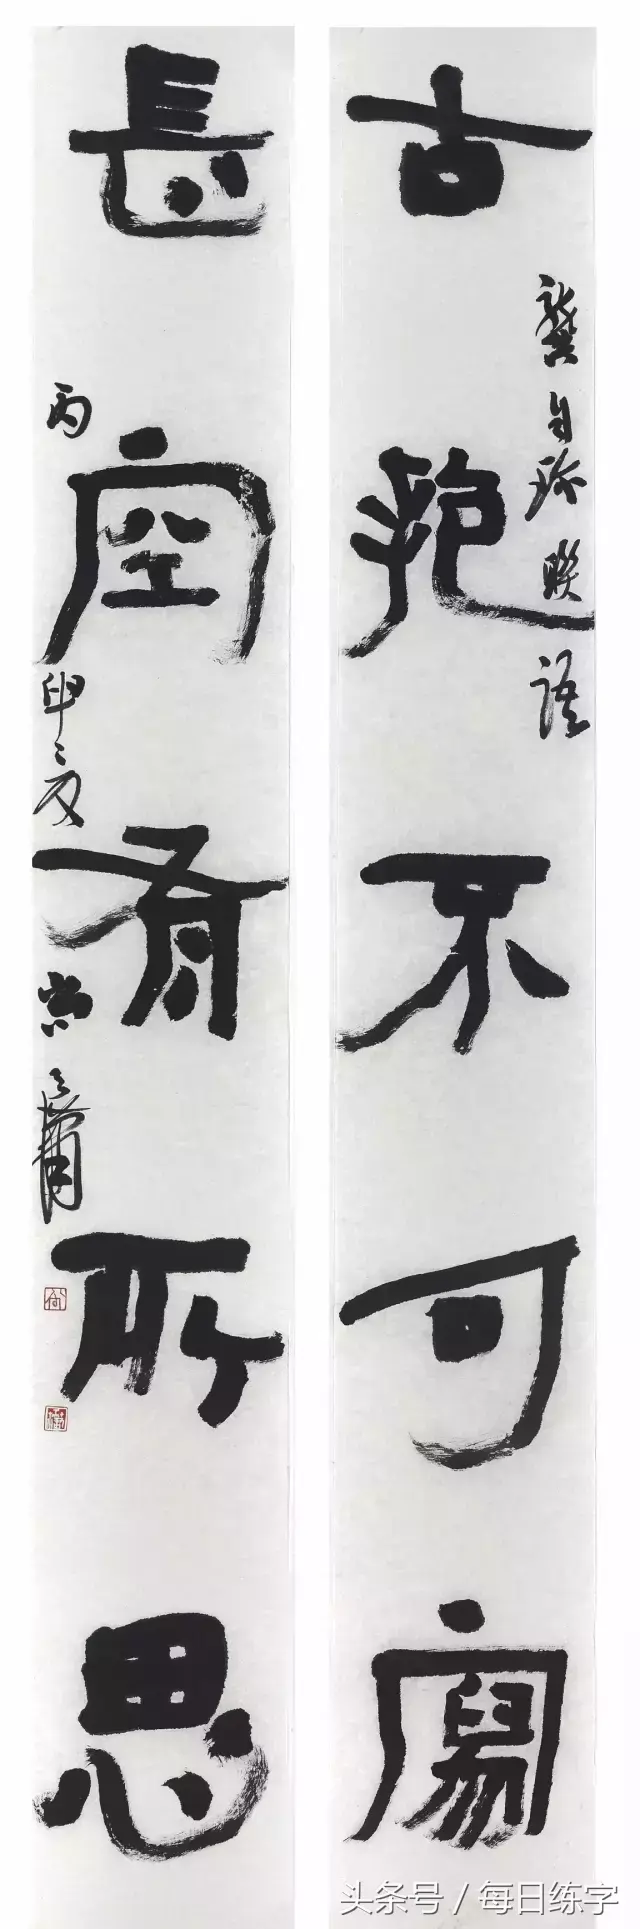 古抱不可寫
龔自珍聯語
長空有所思
丙申之夏
头条号 / 每日练字